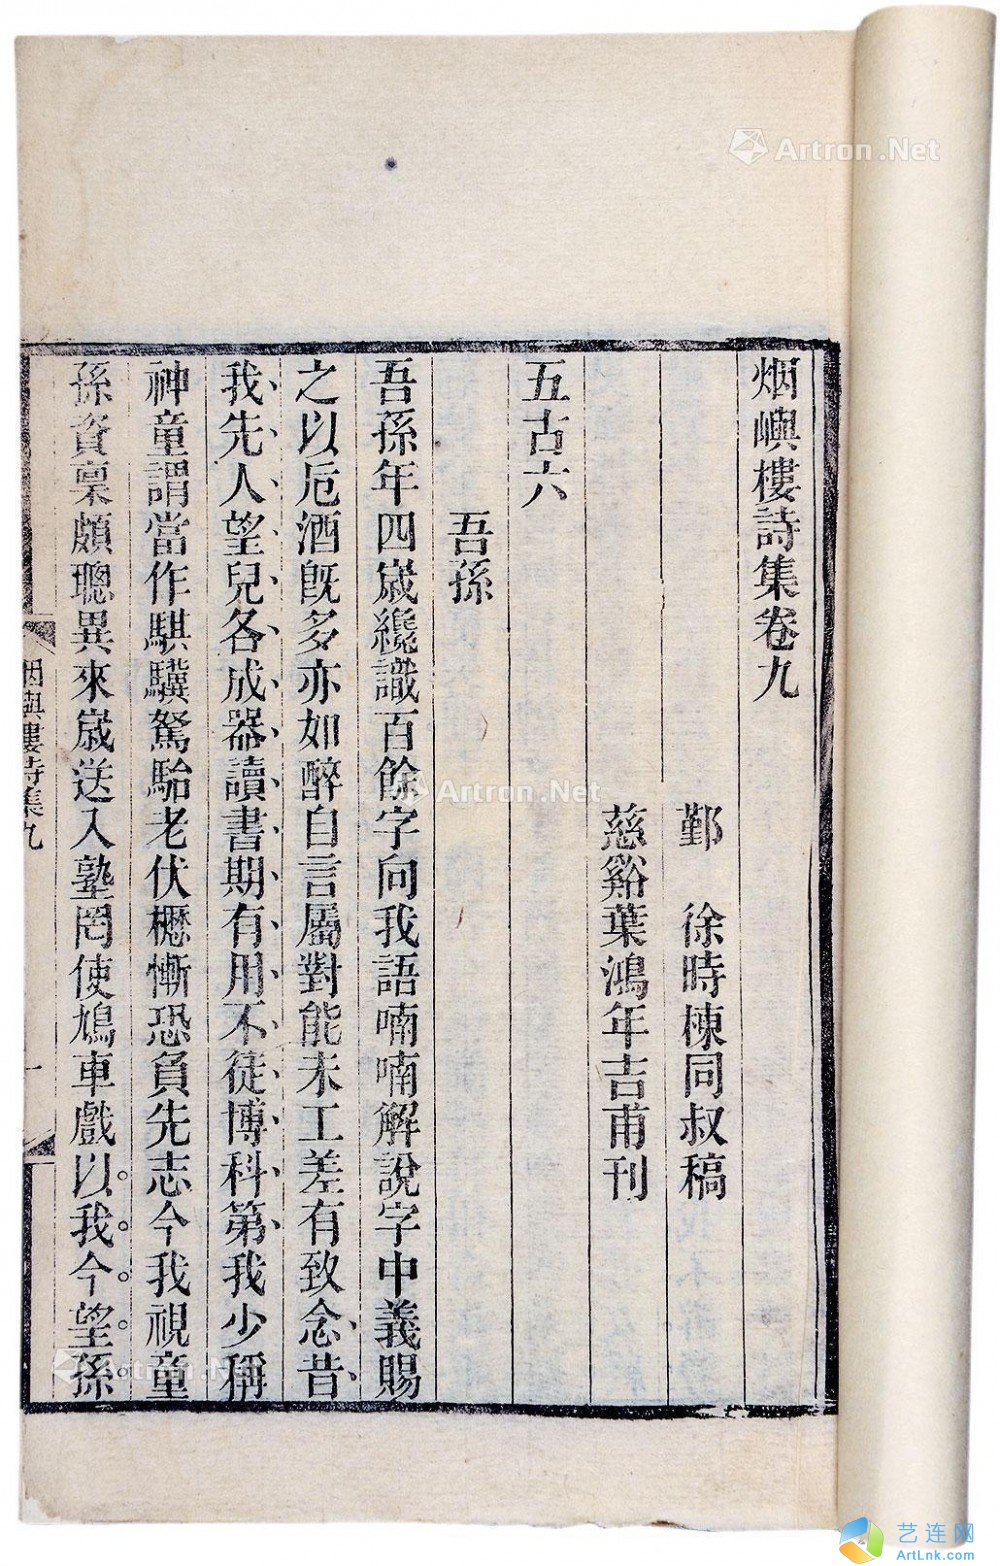 烟嶼樓詩集卷九
鄞　徐時棟同叔稿
慈谿葉鴻年吉甫刊
五古六
吾孫
吾孫年四歲纔識百餘字向我語喃喃解說字中義賜
之以卮酒既多亦如醉自言屬對能未工差有致念昔
我先人望兒各成器讀書期有用不徒博科第我少稱
神童謂當作騏驥駑駘老伏櫪慚恐負先志今我視童
孫資稟頗聰異來歲送入塾罔使鳩車戲以我今望孫
烟嶼樓詩集九
一
Artron.Net
Artron.Net
Artron.Net
艺连网
ArtLnk.com